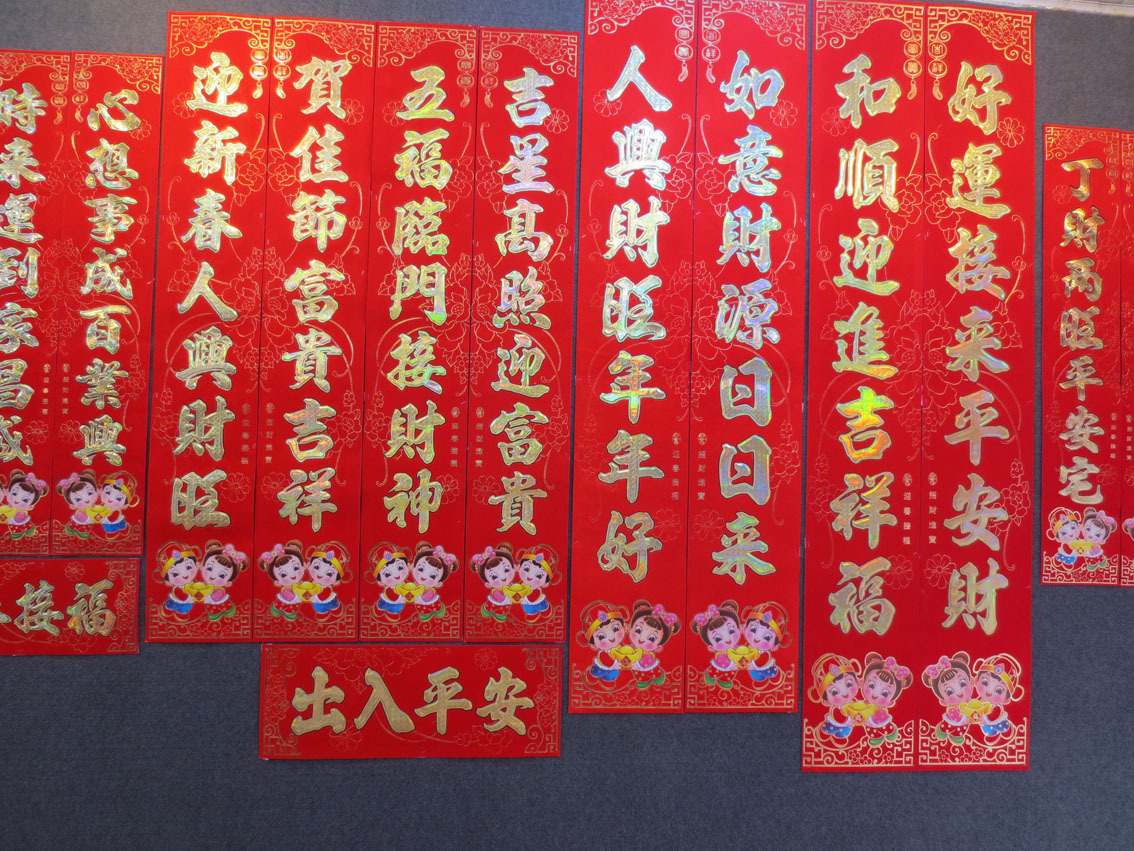 時来運到家昌盛
心想事成百業興
接福
迎新春人興財旺
賀佳節富貴吉祥
五福臨門接財神
吉星高照迎富貴
出入平安
人興財旺年年好
如意財源日日来
和順迎進吉祥福
好運接来平安財
丁財兩旺平安宅
招財進寶
迎春接福